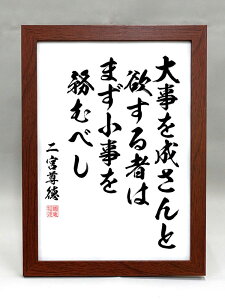 大事を成さんと
欲する者は
まず小事を
務むべし
二宮尊徳